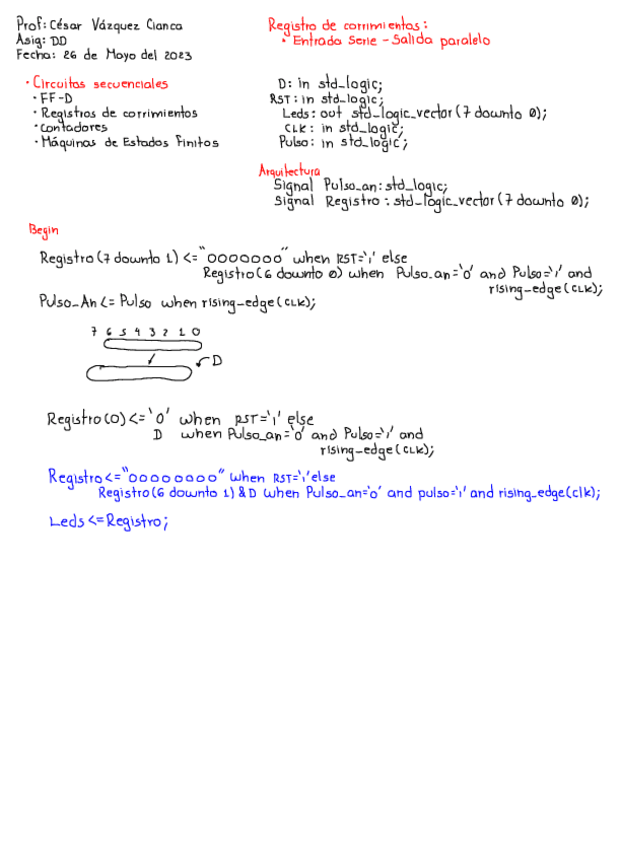 Prof: César Vázquez Cianca
Asig: DD
Fecha: 26 de Mayo del 2023
Registro de corrimientos:
• Entrada Serie - Salida paralelo
• Circuitos secuenciales
• FF-D
• Registros de corrimientos
• Contadores
• Máquinas de Estados Finitos
D: in std_logic;
RST: in std_logic;
Leds: out std_logic_vector(7 downto 0);
CLK: in std_logic;
Pulso: in std_logic;
Arquitectura
Signal Pulso_an: std_logic;
Signal Registro: std_logic_vector(7 downto 0);
Begin
Registro(7 downto 1) <= "0000000" when RST='1' else
Registro(6 downto 0) when Pulso_an='0' and Pulso='1' and
rising_edge(CLK);
Pulso_An <= Pulso when rising_edge(CLK);
7 6 5 4 3 2 1 0
D
Registro(0) <= '0' when RST='1' else
D when Pulso_an='0' and Pulso='1' and
rising_edge(CLK);
Registro <= "00000000" when RST='1' else
Registro(6 downto 1) & D when Pulso_an='0' and pulso='1' and rising_edge(clk);
Leds <= Registro;